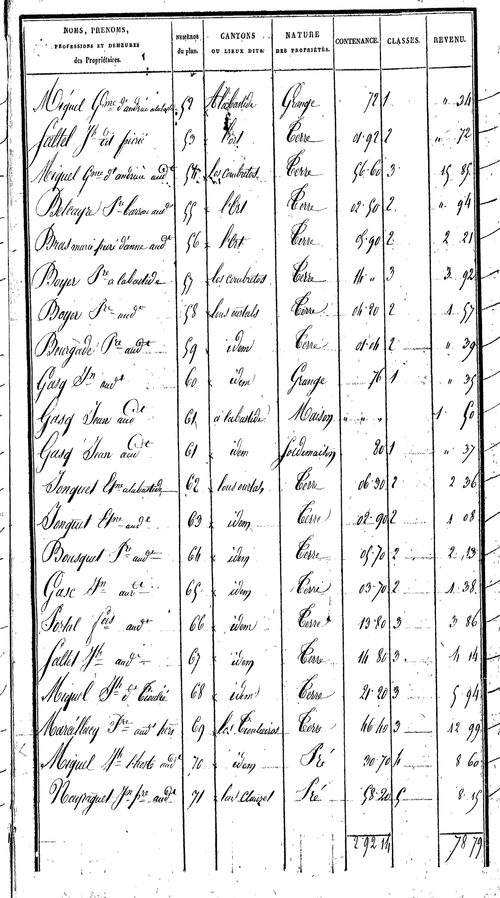 NOMS, PRENOMS, PROFESSIONS ET DEMEURES des Propriétaires. NUMÉROS du plan. CANTONS OU LIEUX DITS. NATURE DES PROPRIÉTÉS. CONTENANCE. CLASSES. REVENU.
Miquel Gme d'andrieu alabastide 52 Alabastide Grange 72 1 " 34
Saltel Jh 53 l'ort Terre 01-92 2 " 72
Miquel Gme d'andrieu audt 54 les combretes Terre 56-60 3 15 85
Delcayre Pre audt 55 l'Ort Terre 02-50 2 " 94
Bras marie audt 56 l'Ort Terre 05-90 2 2 21
Boyer Pre a labastide 57 les combretes Terre 14 " 3 3 92
Boyer Pre audt 58 lous ourtals Terre 04-20 2 1 57
Bourgade Pre audt 59 idem Terre 01-04 2 " 39
Gasq Jn audt 60 idem Grange 76 1 " 35
Gasq Jean audt 61 a labastide Maison " " " 1 50
Gasq Jean audt 61 idem Sol de maison 80 1 " 37
Jonquet Etne alabastide 62 lous ourtals Terre 06-30 2 2 36
Jonquet Etne audt 63 idem Terre 02-90 2 1 08
Bousquet Pre audt 64 idem Terre 05-70 2 2 13
Gasc Jn audt 65 idem Terre 03-70 2 1 38
Portal fois audt 66 idem Terre 13-80 3 3 86
Saltel Jh audt 67 idem Terre 14 80 3 4 14
Miquel Jh 68 idem Terre 21-20 3 5 94
audt 69 Terre 46 40 3 12 99
Miquel Jh audt 70 idem Pré 30-70 4 8 60
Jn audt 71 Pré 58-20 5 8-15
2 92 14 78 79